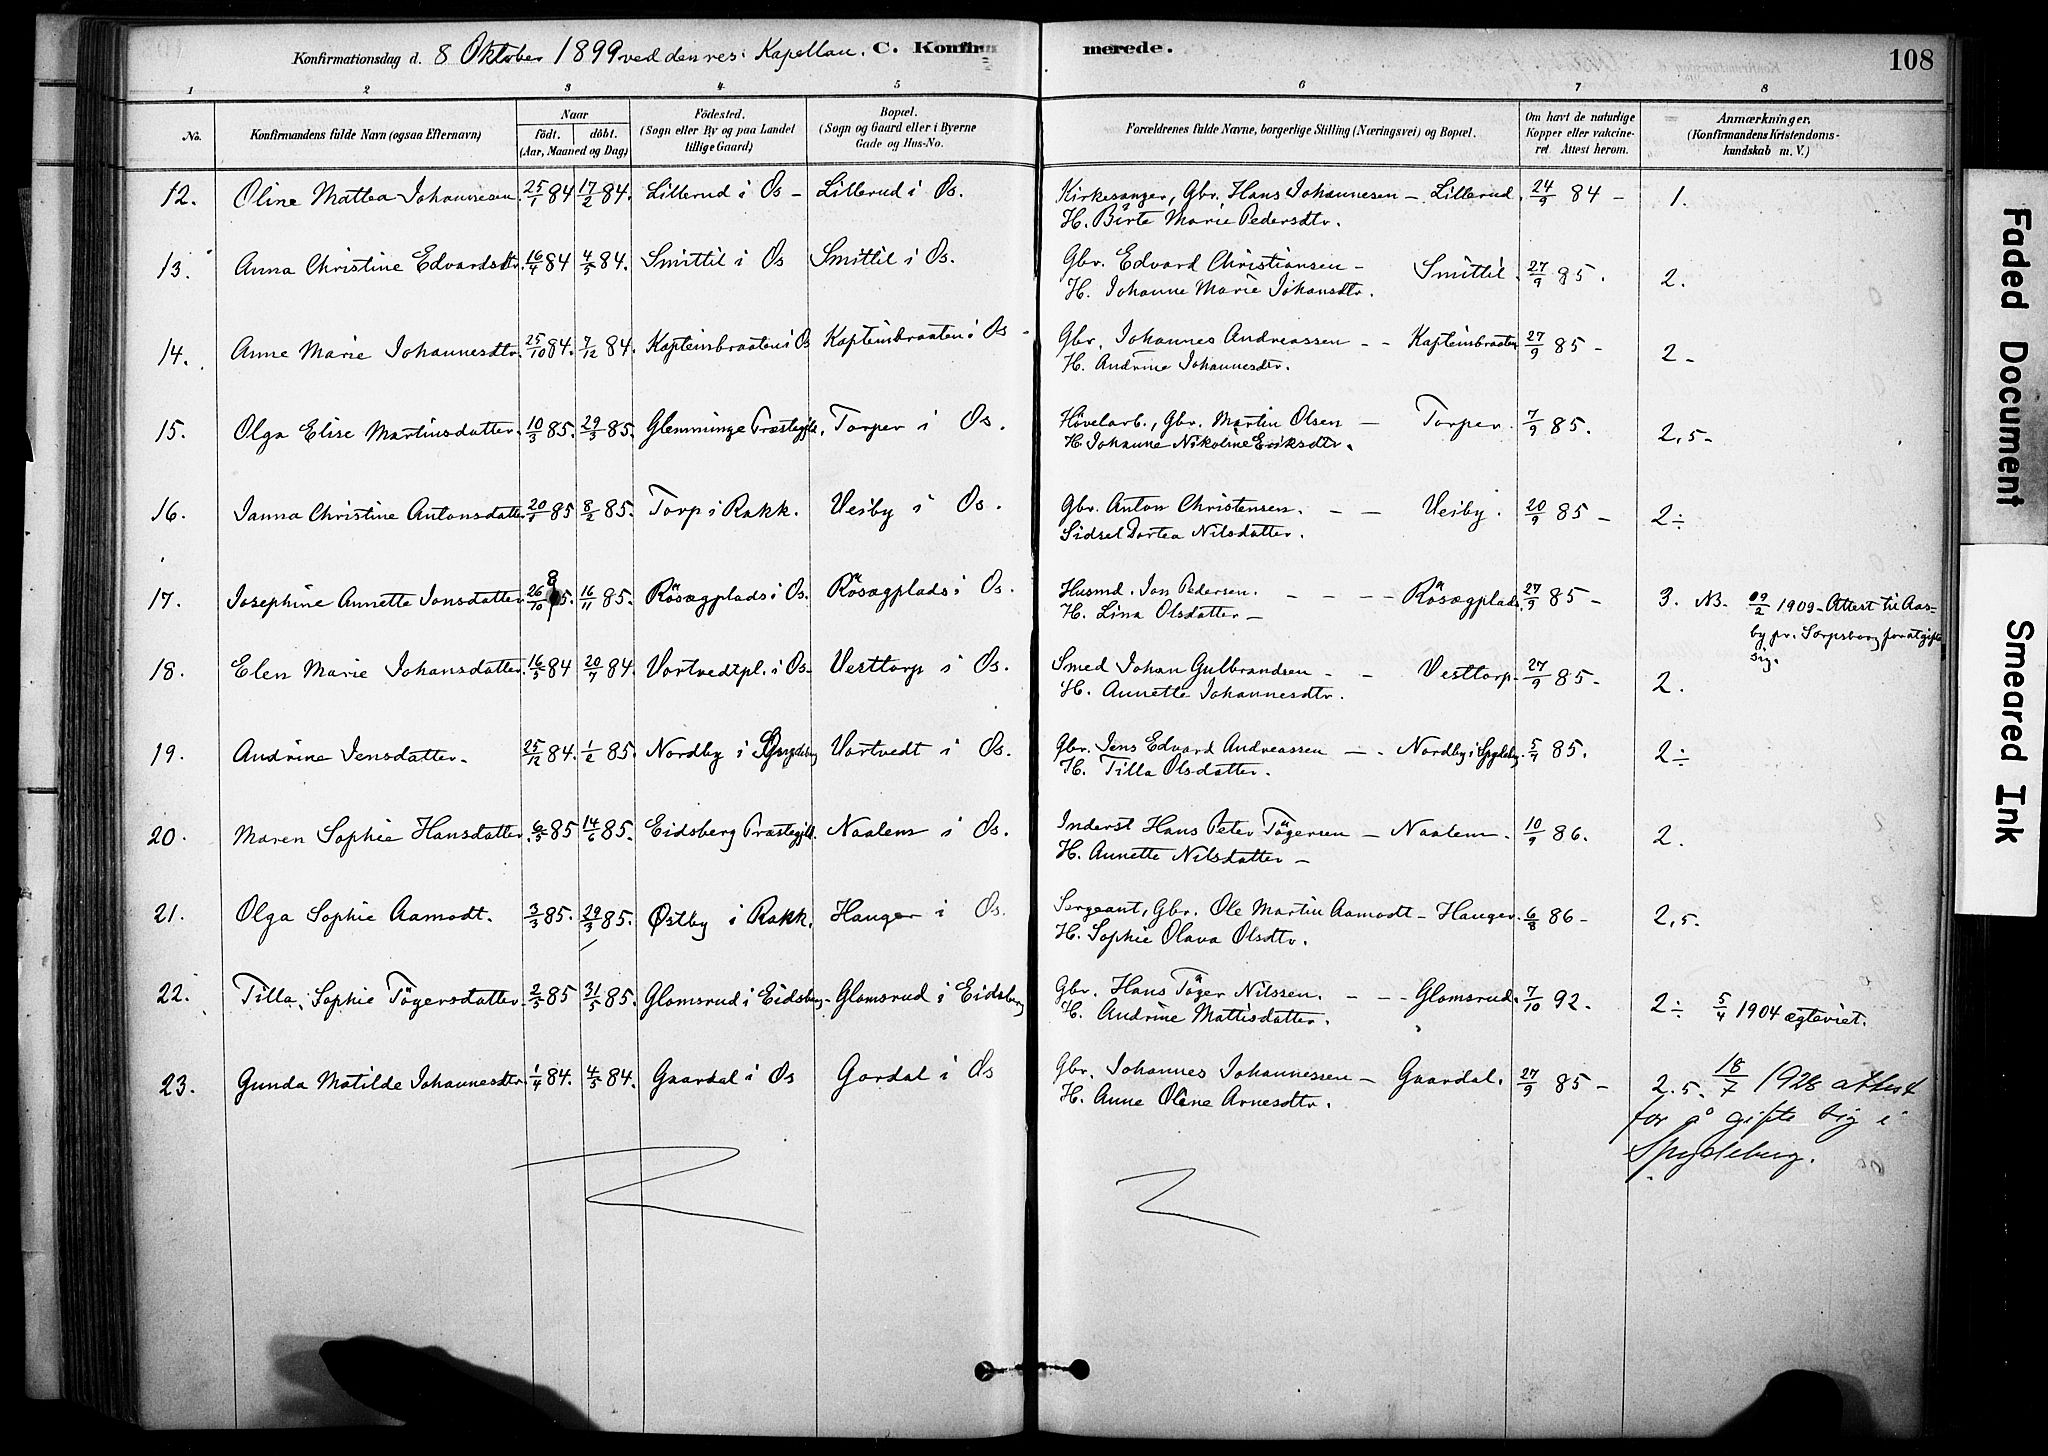 Konfirmationsdag d. 8 Oktober 1899 ved den res. Kapellan. C. Konfirmerede. 108
1 2 3 4 5 6 7 8
No. Konfirmandens fulde Navn (ogsaa Efternavn) Naar födt. döbt. (Aar, Maaned og Dag) Födested. (Sogn eller By og paa Landet tillige Gaard) Bopæl. (Sogn og Gaard eller i Byerne Gade og Hus-No. Forældrenes fulde Navne, borgerlige Stilling (Næringsvei) og Bopæl. Om havt de naturlige Kopper eller vakcineret. Attest herom. Anmærkninger. (Konfirmandens Kristendomskundskab m. V.)
12. Oline Mattea Johannesen 25/1 84 17/2 84. Lillerud i Os - Lillerud i Os. Kirkesanger, Gbr. Hans Johannesen - Lillerud. 24/9 84 - 1.
H. Birte Marie Pedersdtr.
13. Anna Christine Edvardsdtr. 16/4 84 4/5 84. Smittil i Os Smittil i Os. Gbr. Edvard Christiansen - Smittil. 27/9 85. 2.
H. Johanne Marie Johansdtr.
14. Anne Marie Johannesdtr. 25/10 84. 7/12 84. Kapteinsbraaten i Os Kapteinsbraaten i Os - Gbr. Johannes Andreassen - - Kapteinsbraaten 27/9 85 - 2 -
H. Andrine Johannesdtr.
15. Olga Elise Martinsdatter. 10/3 85. 29/3 85. Glemminge Præstegjld. Torper i Os. Hövelarb., Gbr. Martin Olsen - Torper. 7/9 85. 2,5 -
H. Johanne Nikoline Eriksdtr.
16. Janna Christine Antonsdatter 20/1 85 8/2 85. Torp i Rakk. Veiby i Os. Gbr. Anton Christensen. - - Veiby. 20/9 85 - 2÷
Sidsel Dortea Nilsdatter.
17. Josephine Annette Jonsdatter 26/10 85. 16/11 85. Rösægplads i Os. Rösægplads i Os. Husmd. Jon Pedersen. - - - - Rösægplads 27/9 85 - 3. NB. 09/2 1909 - Attest til Aas-
H. Lina Olsdatter - by pr. Sarpsborg for at gifte
sig.
18. Elen Marie Johansdatter 16/5 84 20/7 84. Vortvedtpl. i Os Vesttorp i Os. Smed Johan Gulbrandsen - - Vesttorp - 27/9 85 - 2.
H. Annette Johannesdtr.
19. Andrine Jensdatter. 25/12 84. 1/2 85. Nordby i Spydeberg Vortvedt i Os. Gbr. Jens Edvard Andreassen - - Nordby i Spydeberg 5/7 85. 2÷
H. Tilla Olsdatter.
20. Maren Sophie Hansdatter. 6/5 85 14/6 85. Eidsberg Præstegjld. Naalem i Os. Inderst Hans Peter Tögersen - Naalem. 10/9 86. 2.
H. Annette Nilsdatter -
21. Olga Sophie Aamodt. 3/3 85. 29/3 85. Østby i Rakk. Hauger i Os. Sergeant, Gbr. Ole Martin Aamodt - Hauger. 6/8 86 - 2,5.
H. Sophie Olava Olsdtr.
22. Tilla Sophie Tögersdatter. 2/3 85 31/5 85. Glomsrud i Eidsberg - Glomsrud i Eidsberg Gbr. Hans Töger Nilssen. - - - Glomsrud. 7/10 92. 2÷ 5/4 1904 ægteviet.
H. Andrine Mattisdatter.
23. Gunda Matilde Johannesdtr 1/4 84. 4/5 84. Gaardal i Os Gardal i Os Gbr. Johannes Johannessen - Gaardal. 27/9 85 - 2.5. 18/7 1928 attest
H. Anne Oline Arnesdtr. for å gifte sig i
Spydeberg.
Faded Document
Smeared Ink